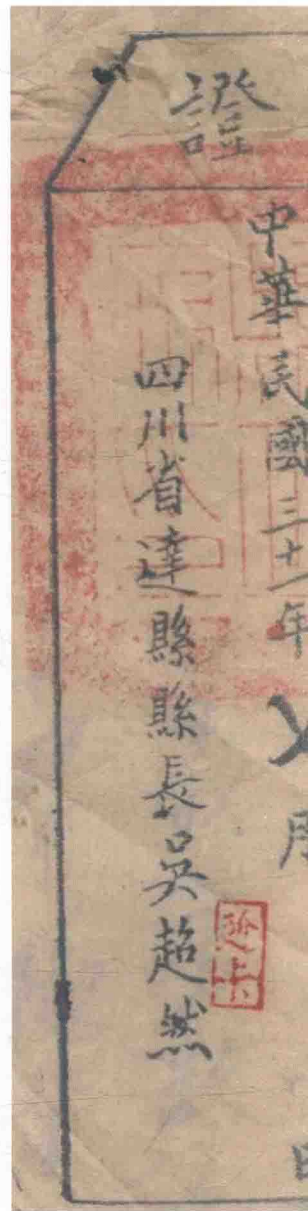 證
中華民國三十一年 月 日
四川省達縣縣長吳超然